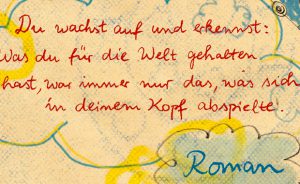 Du wachst auf und erkennst:
Was du für die Welt gehalten
hast, war immer nur das, was sich
in deinem Kopf abspielte.
Roman